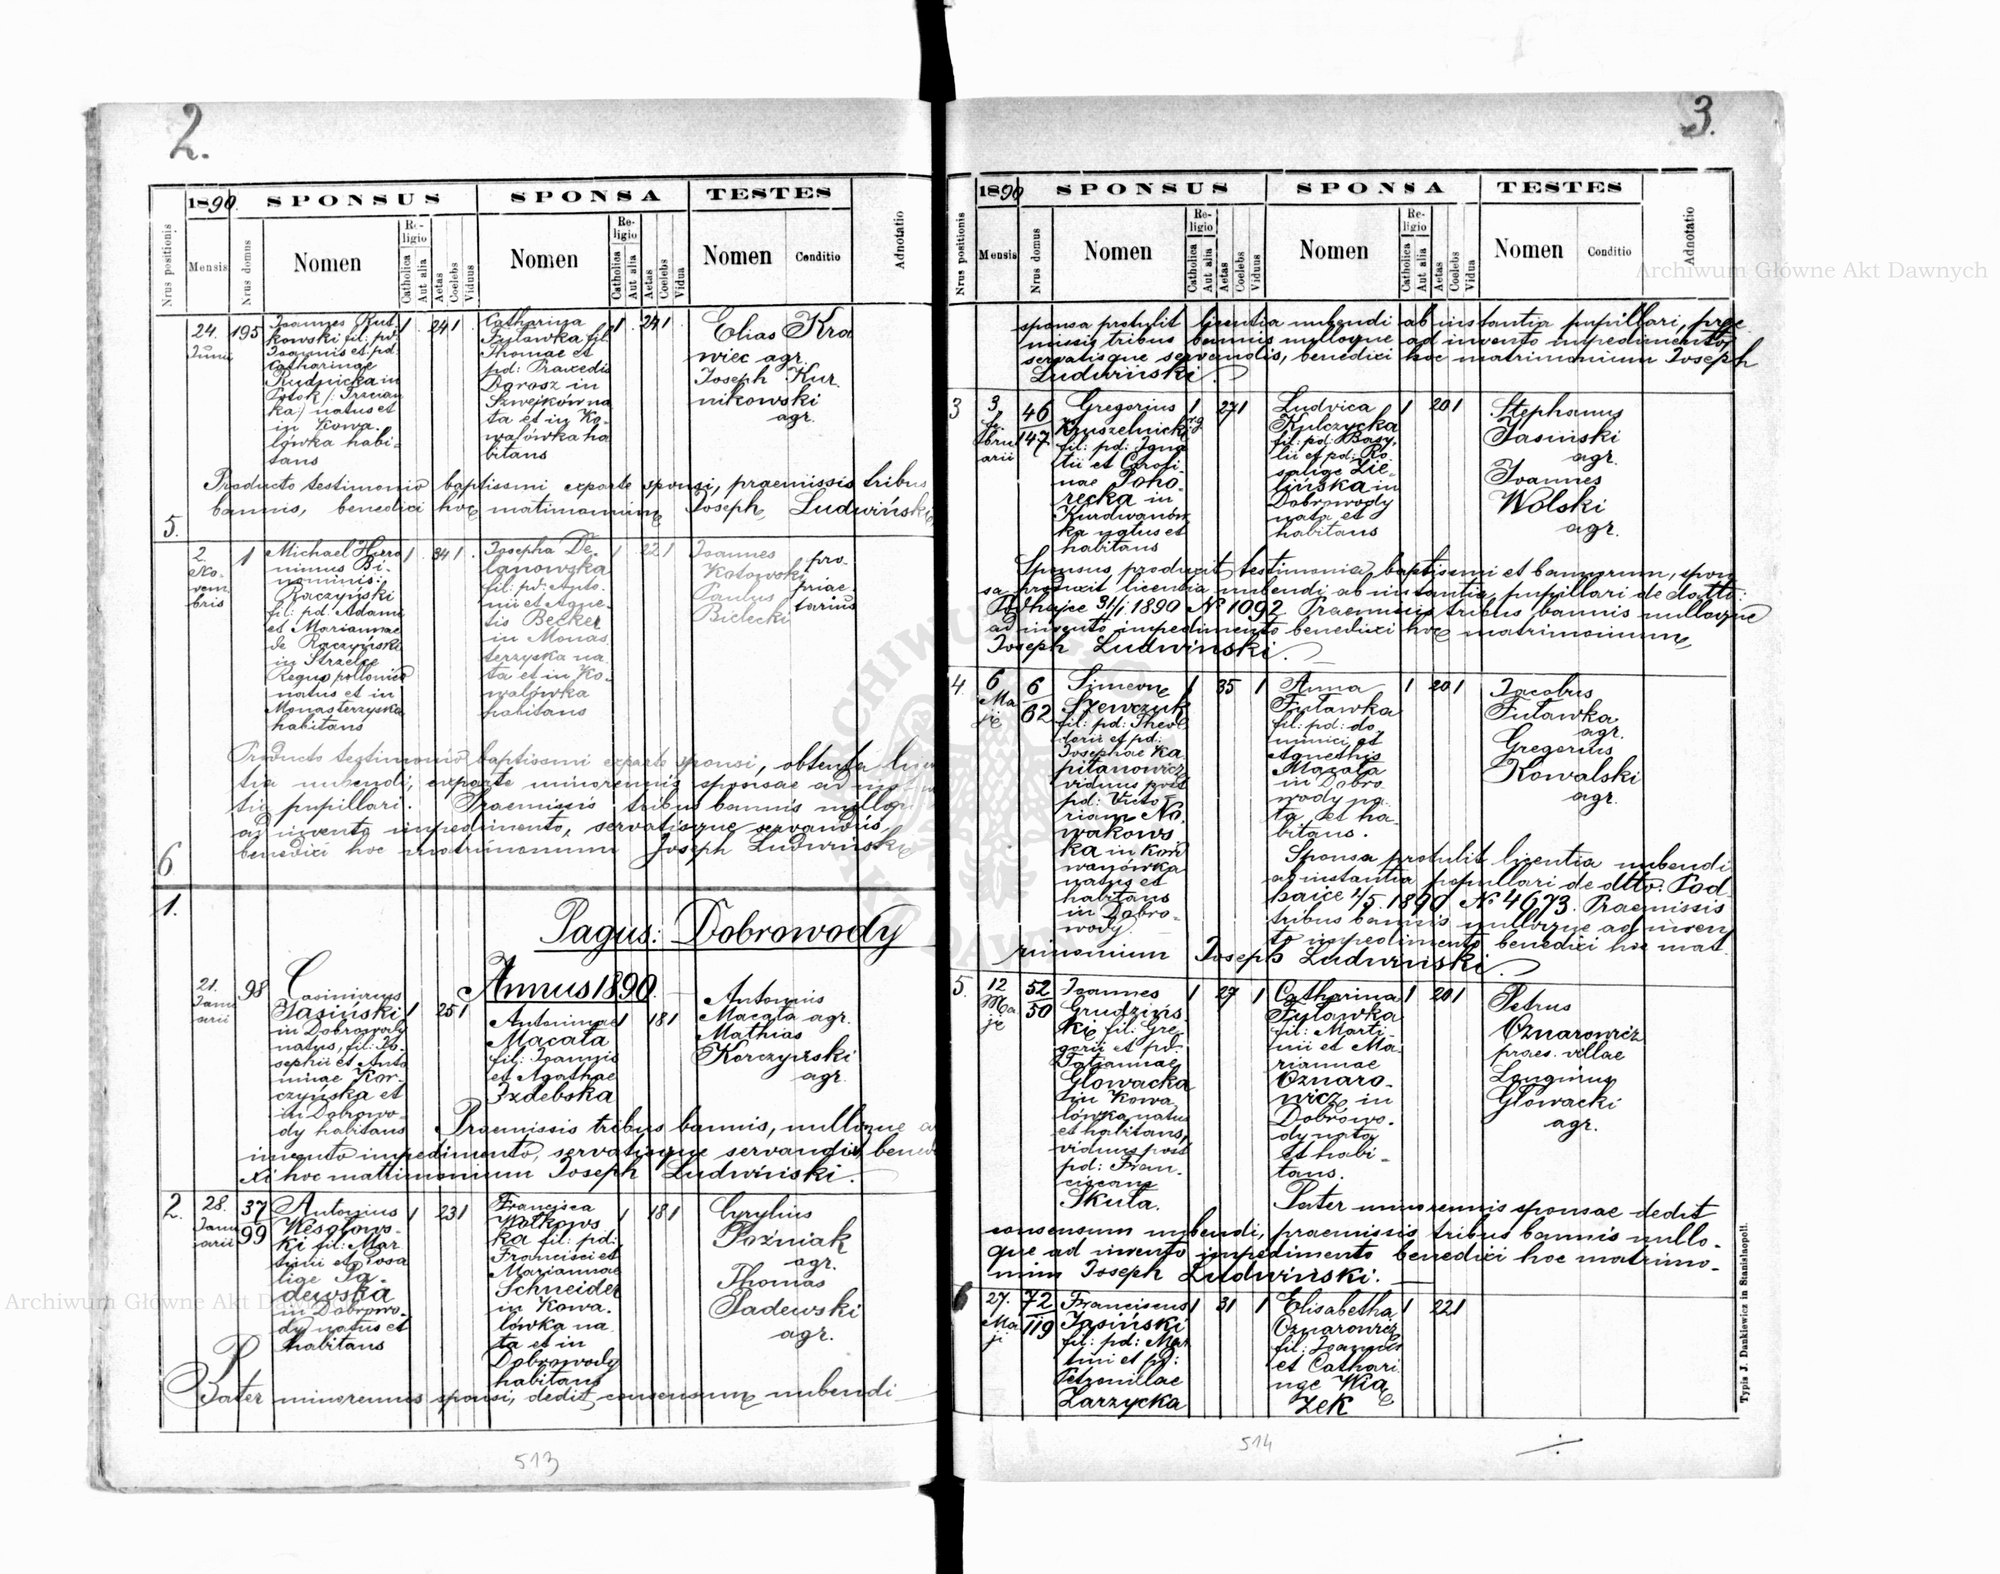 2.
1890. SPONSUS SPONSA TESTES
Nrus positionis
Mensis
Nrus domus
Nomen
Religio
Catholica
Aut alia
Aetas
Coelebs
Viduus
Nomen
Religio
Catholica
Aut alia
Aetas
Coelebs
Vidua
Nomen
Conditio
Adnotatio
5.
24.
Junii
195
Joannes Rut
kowski fil: pd:
Joannis et pd:
Catharinae
Rudnicka in
Potok /: Trzcian
ka:/ natus et
in Kowa-
lówka habi-
tans
1 24 1
Catharina
Fuławka fil:
Thomae et
pd: Praxedis
Dorosz in
Szwejków na
ta et in Ko-
walówka ha
bitans
1 24 1
Elias Kra
wiec agr.
Joseph Kur
nikowski
agr.
Producto testimonio baptismi exparte sponsi, praemissis tribus
bannis, benedixi hoc matrimonium Joseph Ludwiński
6
2.
No-
vem
bris
1
Michael Hiero
nimus Bi-
nominis:
Raczyński
fil: pd: Adami
et Mariannae
de Raczyński
in Strzelce
Regno polloniae
natus et in
Monasterzyska
habitans
1 34 1
Josepha De-
lanowska
fil: pd: Anto-
nii et Agne-
tis Becker
in Monas
terzyska na-
ta et in Ko-
walówka
habitans
1 22 1
Joannes
Kotowski
Paulus
Bielecki
pro-
priae-
tarius
Producto testimonio baptismi exparte sponsi, obtenta licen
tia nubendi, exparte minorennis sponsae ad ins
tia pupillari. Praemissis tribus bannis nulloq
ad invento impedimento, servatisque servandis,
benedixi hoc matrimonium Joseph Ludwiński
Pagus: Dobrowody
Annus 1890
1.
21.
Janu
arii
98
Casimirus
Jasiński
in Dobrowody
natus, fil: Jo-
sephi et Anto
ninae Kor-
czyńska et
in Dobrowo-
dy habitans
1 25 1
Antonina
Macała
fil: Joannis
et Agathae
Izdebska
1 18 1
Antonius
Macała agr.
Mathias
Korczyński
agr.
Praemissis tribus bannis, nulloque ad
invento impedimento, servatisque servandis bened
xi hoc matrimonium Joseph Ludwiński.
2.
28.
Janu
arii
37
99
Antonius
Wesołows-
ki fil: Mar-
tini et Rosa
liae Sa-
dewska
in Dobrowo-
dy natus et
habitans
1 23 1
Francisca
Wołkows
ka fil: pd:
Francisci et
Mariannae
Schneider
in Kowa-
lówka na
ta et in
Dobrowody
habitans
1 18 1
Cyrylius
Poźniak
agr.
Thomas
Sadewski
agr.
Pater minorennis sponsi, dedit consensum nubendi
513
3.
1890 SPONSUS SPONSA TESTES
Nrus positionis
Mensis
Nrus domus
Nomen
Religio
Catholica
Aut alia
Aetas
Coelebs
Viduus
Nomen
Religio
Catholica
Aut alia
Aetas
Coelebs
Vidua
Nomen
Conditio
Adnotatio
sponsa protulit licentia nubendi ab instantia pupillari, prae
missis tribus bannis nulloque ad invento impedimento
servatisque servandis, benedixi hoc matrimonium Joseph
Ludwiński
3
3
fe
bru
arii
46
147
Gregorius
Kruszelnicki
fil: pd: Igna
tii et Caroli-
nae Poho-
recka in
Kurdwanów
ka natus et
habitans
1 27 1
Ludvica
Kulczycka
fil: pd: Basy-
lii et pd: Ro-
saliae Zie-
lińska in
Dobrowody
nata et
habitans
1 20 1
Stephanus
Jasiński
agr.
Joannes
Wolski
agr.
Sponsus produxit testimonia baptismi et bannorum, spon
sa produxit licentia nubendi ab instantia pupillari de datto:
Podhajce 31/1. 1890 No 1092 Praemissis tribus bannis nulloque
ad invento impedimento benedixi hoc matrimonium
Joseph Ludwiński.
4.
6
Ma
je
6
62
Simeon
Szewczuk
fil: pd: Theo
dorii et pd:
Josephae Ka
pitanowicz
viduus post
pd: Victo-
riam No-
wakows
ka in Kord
wanówka
natus et
habitans
in Dobro-
wody.
1 35 1
Anna
Fuławka
fil: pd: do
minici et
Agnethis
Macała
in Dobro
wody na-
ta et ha-
bitans.
1 20 1
Jacobus
Fuławka
agr.
Gregorius
Kowalski
agr.
Sponsa protulit licentia nubendi
ad instantia popullari de dtto: Pod-
haice 1/5. 1890 No 4673. Praemissis
tribus bannis nulloque ad inven
to impedimento benedixi hoc mat
rimonium Joseph Ludwiński.
5.
12
Ma
je
52
50
Joannes
Grudzińs-
ki fil: Gre-
gorii et pd:
Tatiannae
Głowacka
in Kowa-
lówka natus
et habitans,
viduus post
pd: Fran-
ciscam
Skuła.
1 27 1
Catharina
Fuławka
fil: Marti-
nii et Ma-
riannae
Oznaro-
wicz in
Dobrowo-
dy nata
et habi-
tans.
1 20 1
Petrus
Oznarowicz
praes. villae
Longinus
Głowacki
agr.
Pater minorennis sponsae dedit
consensum nubendi, praemissis tribus bannis nullo-
que ad invento impedimento benedixi hoc matrimo-
nium Joseph Ludwiński.
6
27.
Ma
ji
72
119
Franciscus
Jasiński
fil: pd: Mar
tini et pd:
Petronillae
Zarzycka
1 31 1
Elisabetha
Oznarowicz
fil: Joannis
et Cathari
nae Wią
zek
1 22 1
514
Typis J. Dankiewicz in Stanislaopoli.
Archiwum Główne Akt Dawnych
Archiwum Główne Akt Dawnych